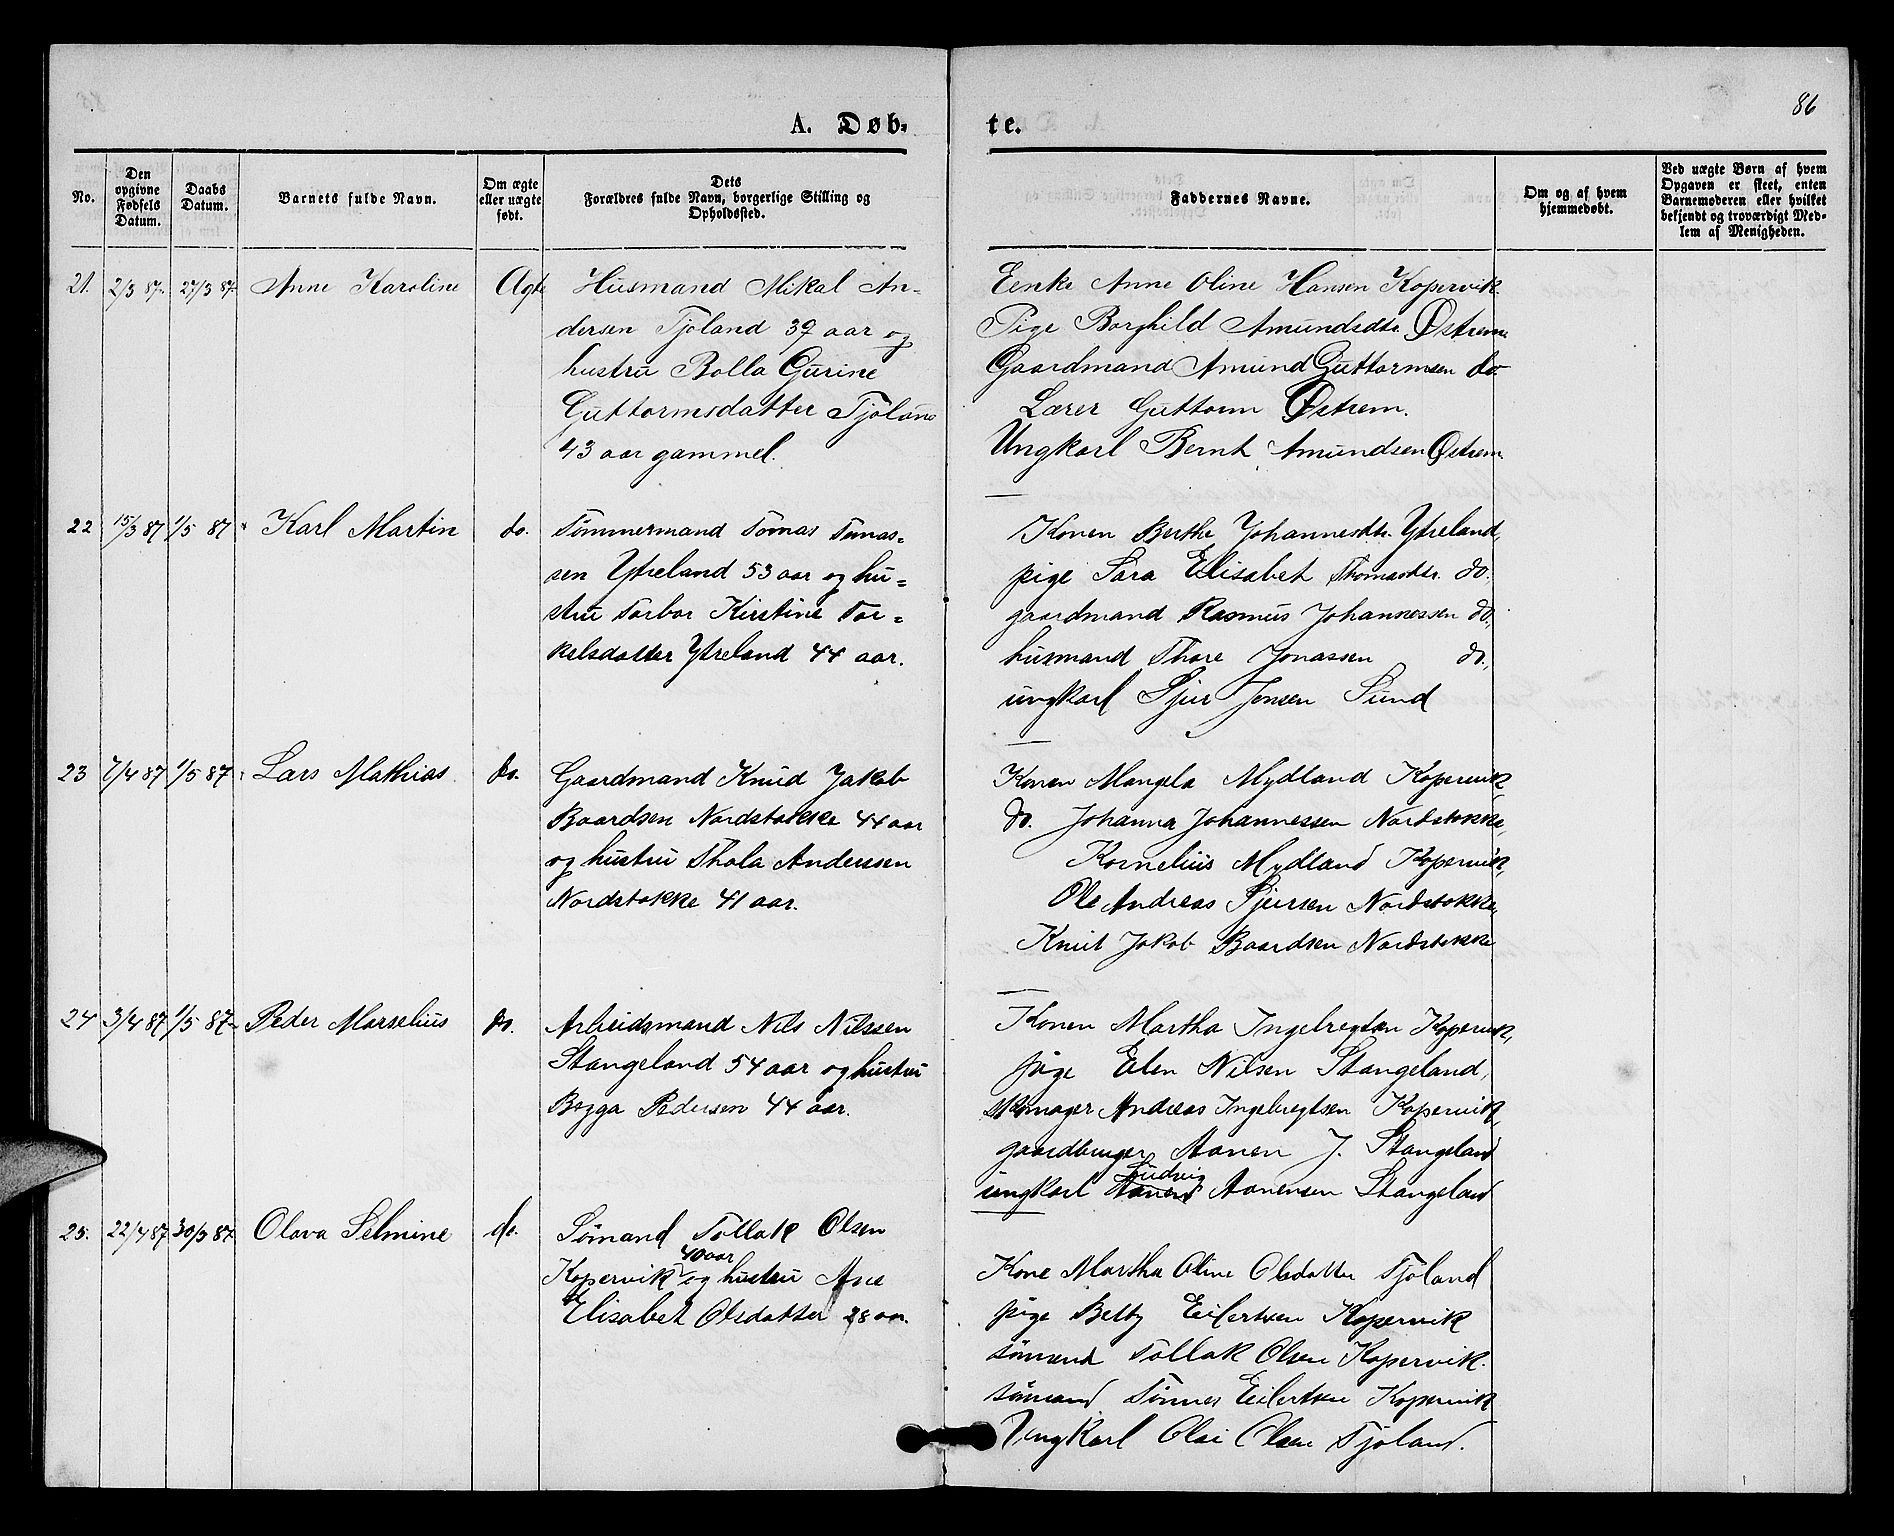 86
A. Døb-
te.
No.
Den opgivne Fødsels Datum.
Daabs Datum.
Barnets fulde Navn.
Om ægte eller uægte født.
Dets Forældres fulde Navn, borgerlige Stilling og Opholdssted.
Faddernes Navne.
Om og af hvem hjemmedøbt.
Ved uægte Børn af hvem Opgaven er skeet, enten Barnemoderen eller hvilket bekjendt og troværdigt Medlem af Menigheden.
21. 2/3 87. 27/3 87. Anne Karoline Ægte
Husmand Mikal An-
dersen Tjøland 39 aar og
hustru Bolla Gurine
Guttormsdatter Tjøland
43 aar gammel.
Enke Anne Oline Hansen Kopervik.
Pige Borghild Amundsdtr. Østrem
Gaardmand Amund Guttormsen do.
Lærer Guttorm Østrem.
Ungkarl Bernt Amundsen Østrem.
22 15/3 87 1/5 87 Karl Martin do.
Tømmermand Tomas Tomas-
sen Ytreland 53 aar og hu-
stru Torbor Kirstine Tor-
kelsdatter Ytreland 44 aar.
Konen Berthe Johannesdtr. Ytreland,
pige Sara Elisabet Thomasdtr. do.
gaardmand Rasmus Johannessen do.,
husmand Thore Jonassen do.,
ungkarl Sjur Jensen Sund
23 7/4 87 1/5 87 Lars Mathias. do.
Gaardmand Knud Jakob
Baardsen Nordstokke 44 aar
og hustru Thala Andersen
Nordstokke 41 aar.
Konen Mangela Mydland Kopervik
do. Johanna Johannessen Nordstokke,
Kornelius Mydland Kopervik,
Ole Andreas Sjursen Nordstokke,
Knut Jakob Baardsen Nordstokke
24 3/4 87 1/5 87 Peder Marselius do.
Arbeidsmand Nils Nilssen
Stangeland 54 aar og hustru
Bogga Pedersen 44 aar.
Konen Martha Ingebregtsen Kopervik,
pige Elen Nilsen Stangeland,
skomager Andreas Ingebregtsen Kopervik,
gaardbruger Aanen J. Stangeland
Ludvig
ungkarl Aanen Aanensen Stangeland
25. 22/4 87 30/5 87 Olava Selmine do.
Sømand Tollak Olsen
40 aar
Kopervik og hustru Ane
Elisabet Olsdatter 28 aar.
Kone Martha Oline Olsdatter Tjøland
pige Betty Eilertsen Kopervik
sømand Tollak Olsen Kopervik.
sømand Tønnes Eilertsen Kopervik
Ungkarl Olai Olsen Tjøland.